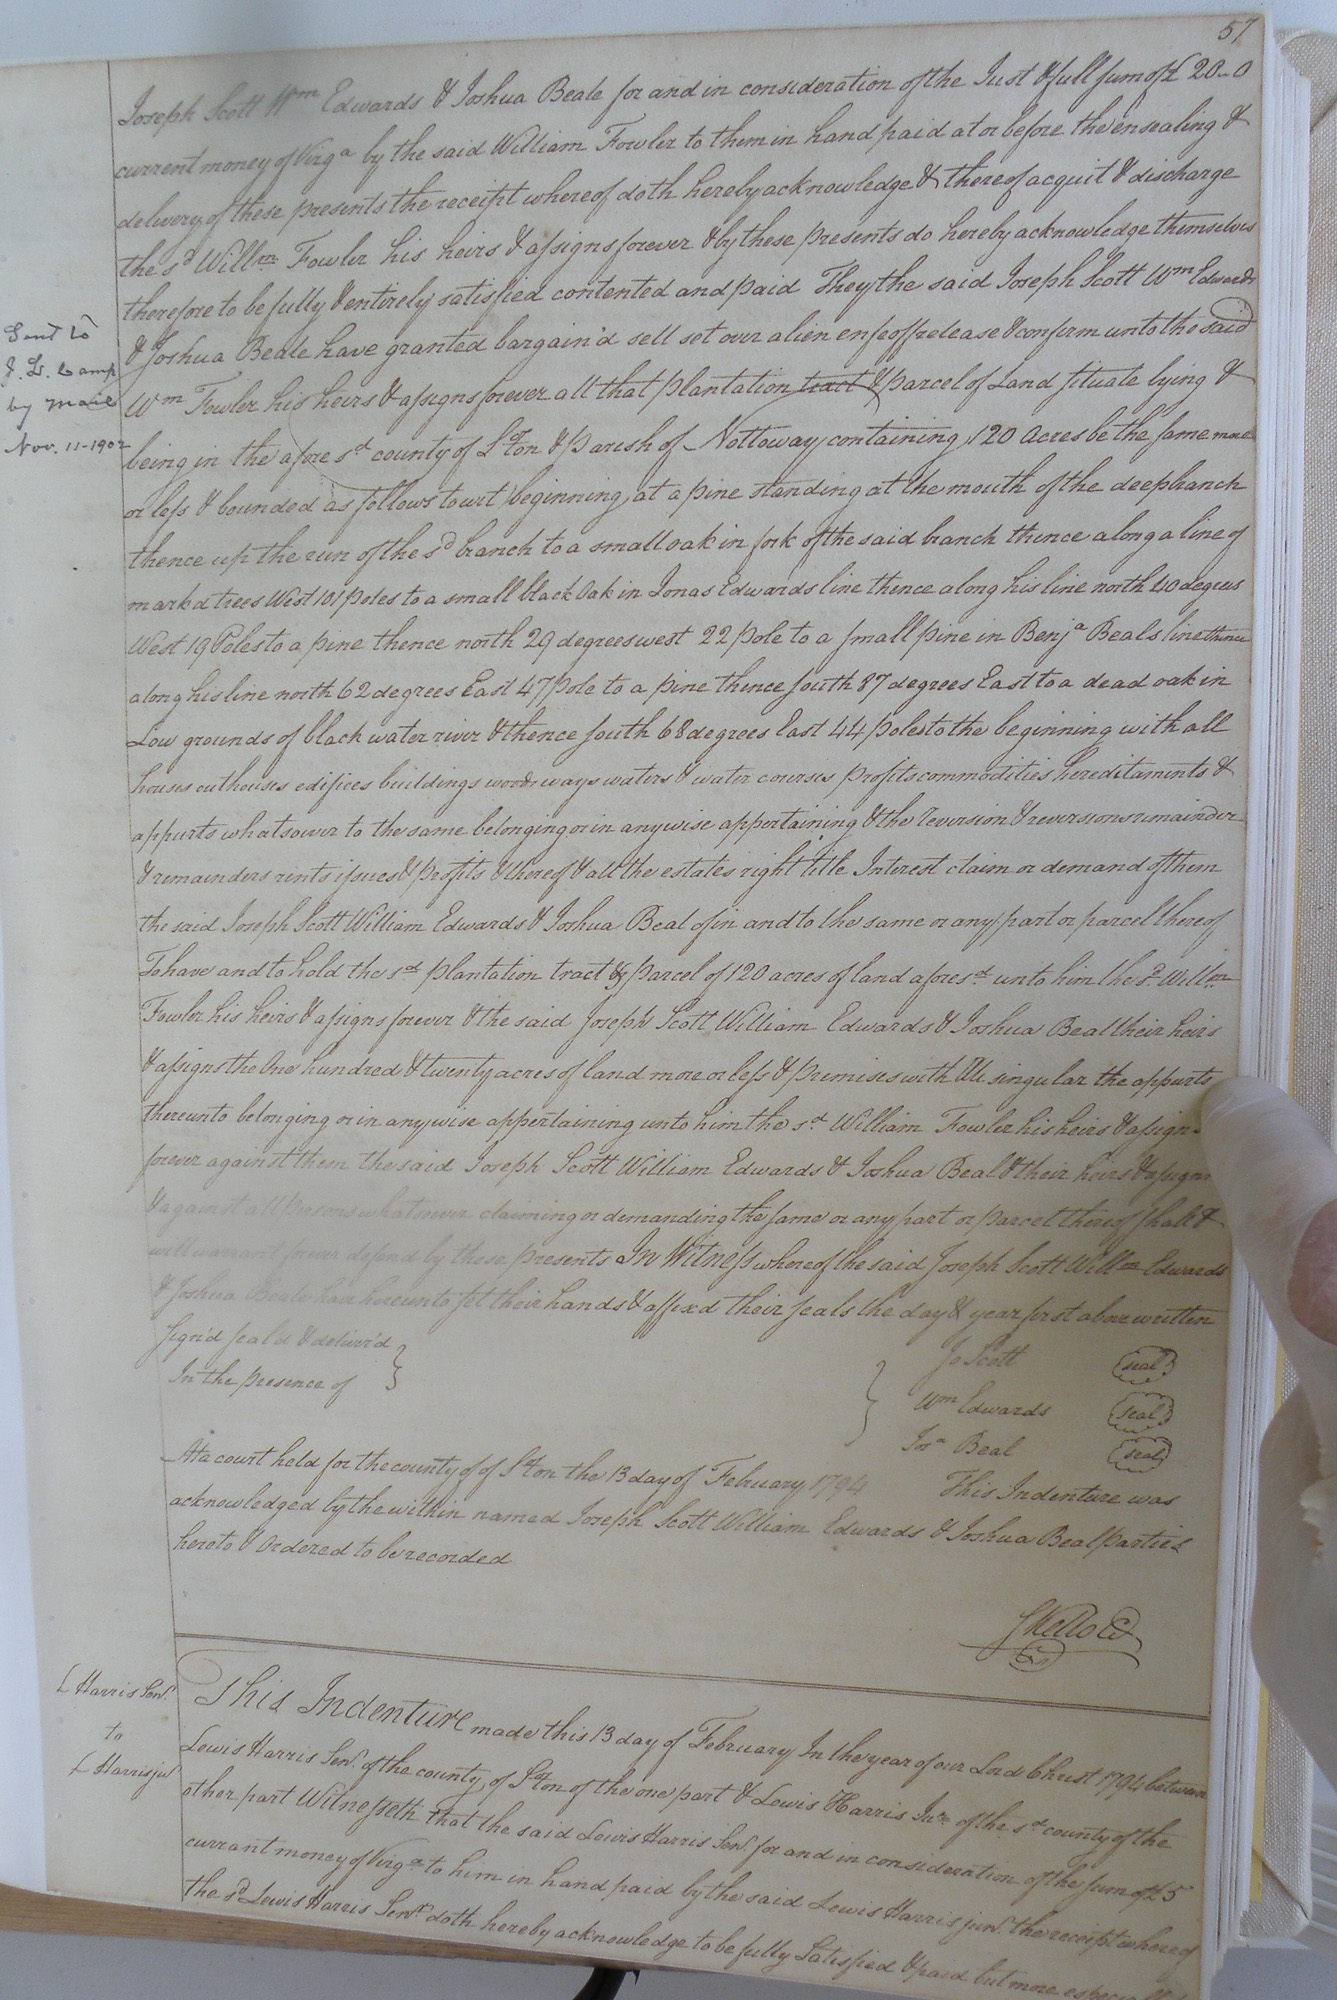 57
Joseph Scott Wm Edwards & Joshua Beale for and in consideration of the Just & full sum of £ 20-0
current money of Virga by the said William Fowler to them in hand paid at or before the ensealing &
delivery of these presents the receipt whereof doth hereby acknowledge & thereof acquit & discharge
the sd Willm Fowler his heirs & assigns forever & by these presents do hereby acknowledge themselves
therefore to be fully & entirely satisfied contented and paid They the said Joseph Scott Wm Edwards
& Joshua Beale have granted bargain'd sell set over alien enfeoff release & confirm unto the said
Wm Fowler his heirs & assigns forever all that plantation tract & parcel of Land situate lying &
being in the afore sd county of S°ton & Parish of Nottoway containing 120 Acres be the same more
or less & bounded as follows towit beginning at a pine standing at the mouth of the deep branch
thence up the run of the sd branch to a small oak in fork of the said branch thence along a line of
markd trees West 101 poles to a small black Oak in Jonas Edwards line thence along his line north 40 degrees
West 19 Poles to a pine thence north 29 degrees west 22 pole to a small pine in Benja Beals line thence
along his line north 62 degrees East 47 pole to a pine thence south 87 degrees East to a dead oak in
Low grounds of black water river & thence south 68 degrees East 44 poles to the beginning with all
houses outhouses edifices buildings woods ways waters & water courses profits commodities hereditaments &
appurts whatsoever to the same belonging or in anywise appertaining & the reversion & reversions remainder
& remainders rents issues & profits & thereof & all the estates right title Interest claim or demand of them
the said Joseph Scott William Edwards & Joshua Beal of in and to the same or any part or parcel thereof
To have and to hold the sd plantation tract & parcel of 120 acres of land afore sd unto him the sd Willm
Fowler his heirs & assigns forever & the said Joseph Scott William Edwards & Joshua Beal their heirs
& assigns the One hundred & twenty acres of land more or less & premises with All singular the appurts
thereunto belonging or in anywise appertaining unto him the sd William Fowler his heirs & assigns
forever against them the said Joseph Scott William Edwards & Joshua Beal & their heirs & assigns
& against all persons whatsoever claiming or demanding the same or any part or parcel thereof shall &
will warrant forever defend by these presents In Witness whereof the said Joseph Scott Willm Edwards
& Joshua Beale have hereunto set their hands & affixd their seals the day & year first above written
Sign'd seal'd & deliver'd
In the presence of
Jo Scott seal
Wm Edwards seal
Josa Beal seal
At a court held for the county of of S°ton the 13 day of February 1794 This Indenture was
acknowledged by the within named Joseph Scott William Edwards & Joshua Beal parties
hereto & Ordered to be recorded
Sent to
by mail
Nov. 11-1902
L Harris Senr
to
L Harris jur
This Indenture made this 13 day of February In the year of our Lord Christ 1794 between
Lewis Harris Senr of the county of S°ton of the one part & Lewis Harris Junr of the sd county of the
other part Witnesseth that the said Lewis Harris Senr for and in consideration of the sum of £5
currant money of Virga to him in hand paid by the said Lewis Harris junr the receipt whereof
the sd Lewis Harris Senr doth hereby acknowledge to be fully Satisfied & paid but more